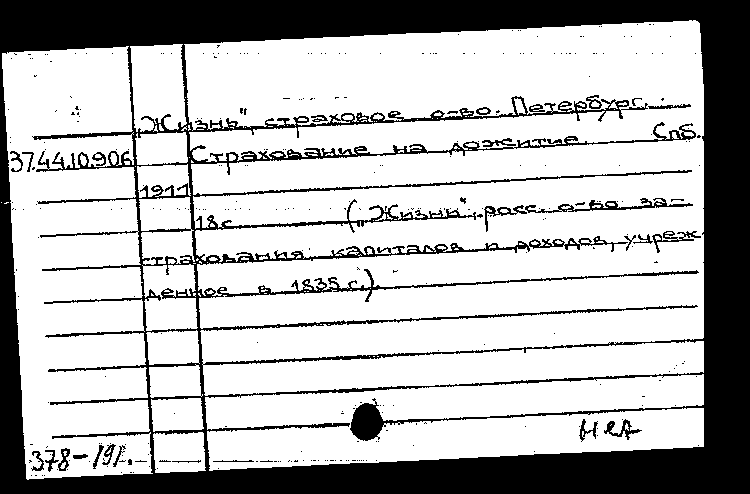 „Жизнь", страховое о-во. Петербург.
37.44.10.906 Страхование на дожитие. Спб.,
1911.
18с. („Жизнь", росс. о-во за-
страхования капиталов и доходов, учреж-
денное в 1835 г.).
378-191.